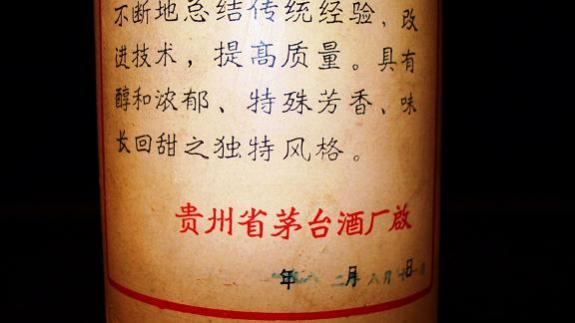 不断地总结传统经验、改
进技术，提高质量。具有
醇和浓郁、特殊芳香、味
长回甜之独特风格。
贵州省茅台酒厂啟
年 月 日